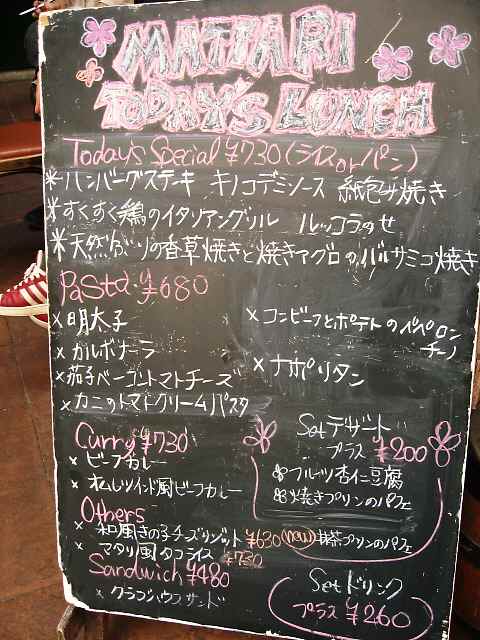 MATTARI
TODAY'S LUNCH
Today's Special ¥730 (ライス or パン)
* ハンバーグステーキ キノコデミソース 紙包み焼き
* すくすく鶏のイタリアングリル ルッコラのせ
* 天然ぶりの香草焼きと焼きマグロのバルサミコ焼き
Pasta ¥680
× 明太子
× カルボナーラ
× 茄子ベーコントマトチーズ
× カニのトマトクリームパスタ
× コンビーフとポテトのペペロン
チーノ
× ナポリタン
Curry ¥730
× ビーフカレー
× オムレツインド風ビーフカレー
Others
× 和風きの子チーズリゾット ¥630
× マタリ風タコライス ¥730
Sandwich ¥480
× クラブハウスサンド
Set デザート
プラス ¥200
フルーツ杏仁豆腐
焼きプリンのパフェ
(new) 抹茶プリンのパフェ
Set ドリンク
プラス ¥260